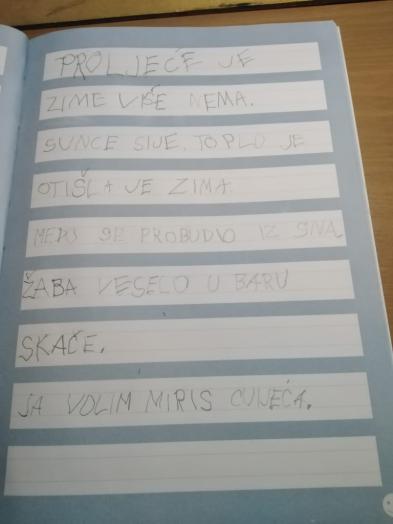 PROLJEĆE JE
ZIME VIŠE NEMA.
SUNCE SIJE, TOPLO JE
OTIŠLA JE ZIMA.
MEDO SE PROBUDIO IZ SNA
ŽABA VESELO U BARU
SKAČE.
JA VOLIM MIRIS CVIJEĆA.